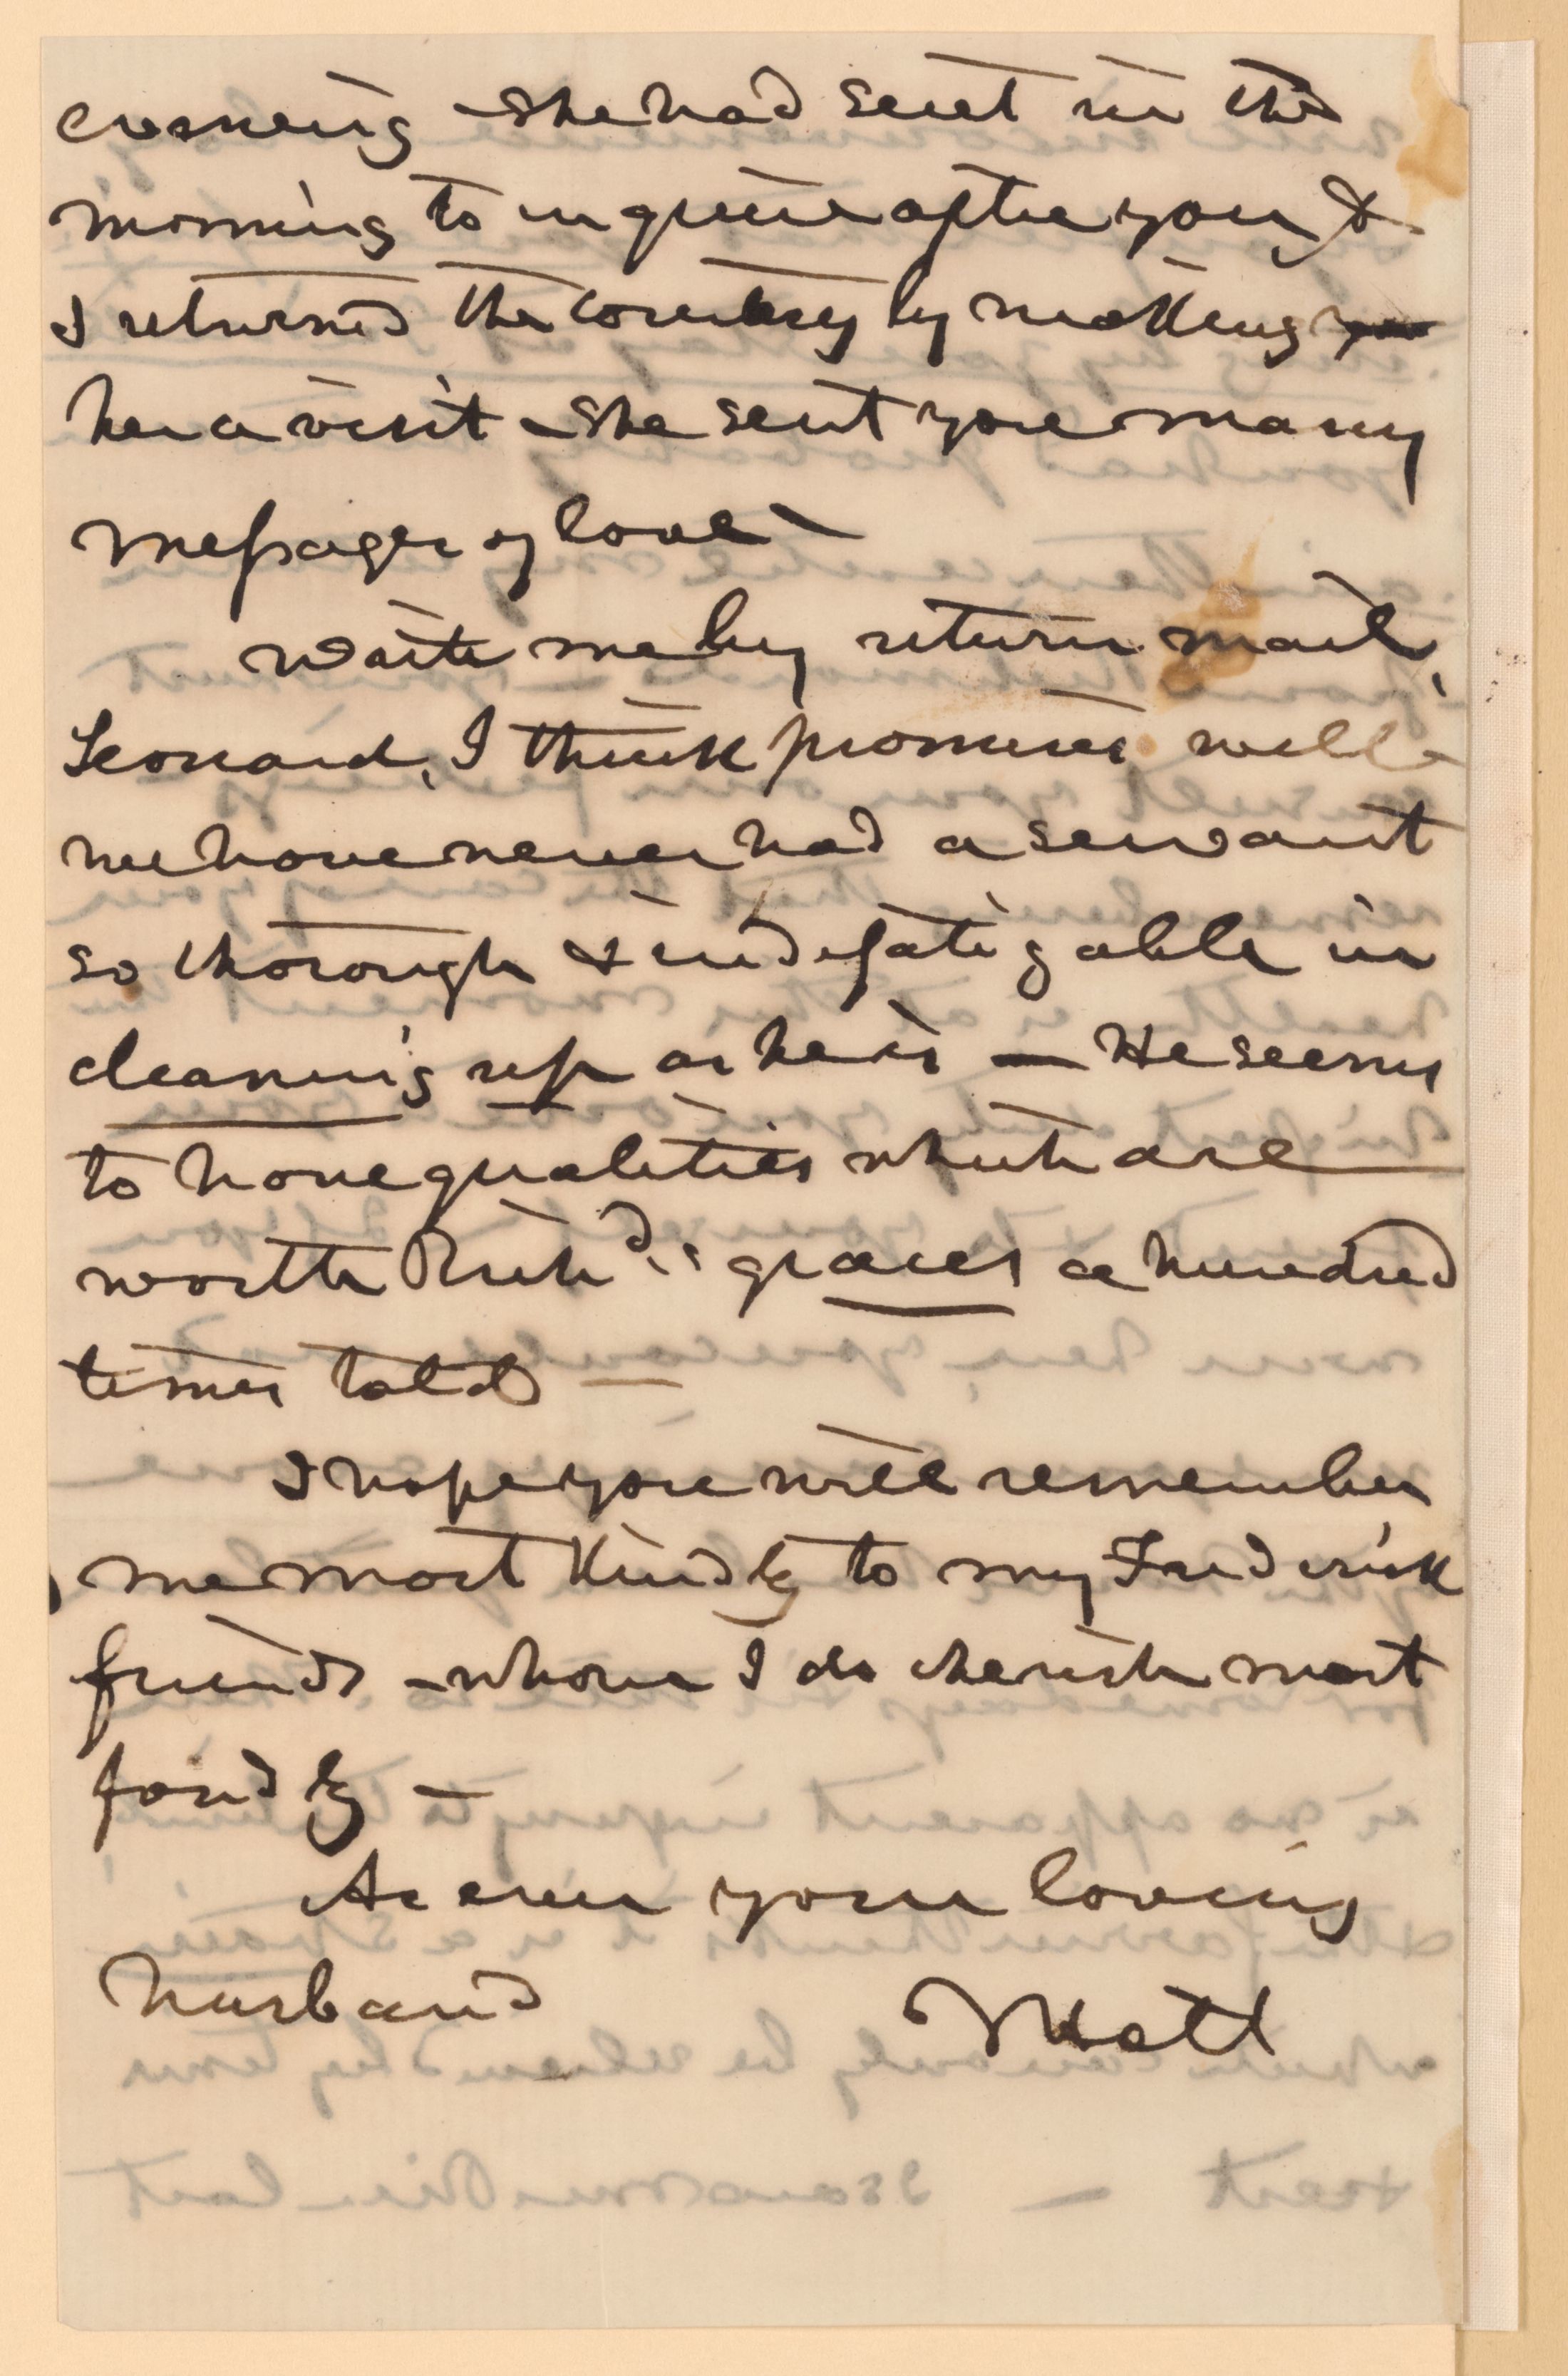 evening - She had sent in the
morning to inquire after you &
I returned the courtesy by making you
her a visit - She sent you many
messages of love -
Write me by return mail,
Leonard, I think promises well -
we have never had a servant
so thorough & indefatigable in
cleaning up as he is - He seems
to have qualities which are
worth Rich'd's graces a hundred
times told -
I hope you will remember
me most kindly to my Frederick
friends - whom I do cherish most
fondly -
As ever your loving
husband Matt